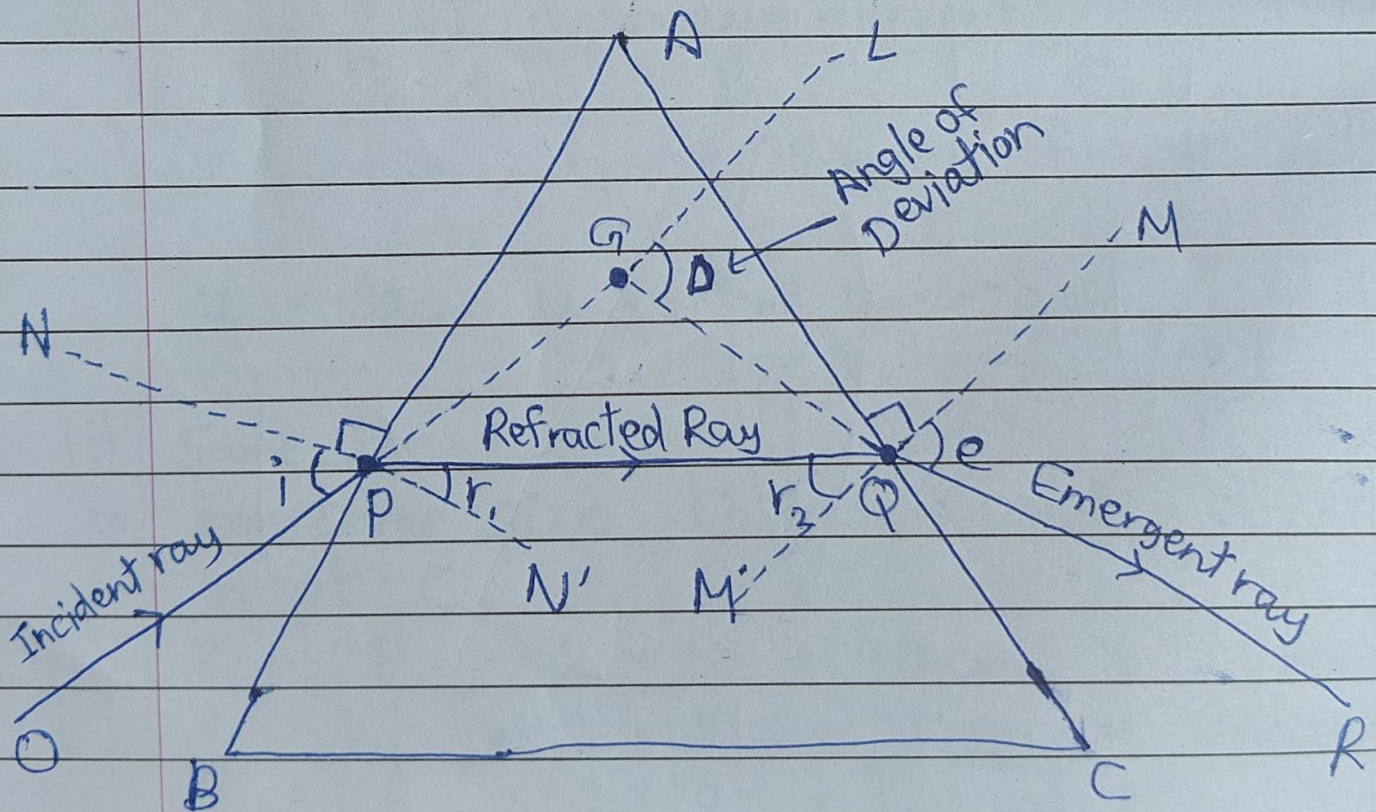 A
L
Angle of
Deviation
G
D
M
N
Refracted Ray
i
P
r₁
r₂
Q
e
Emergent ray
Incident ray
N'
M'
O
B
C
R